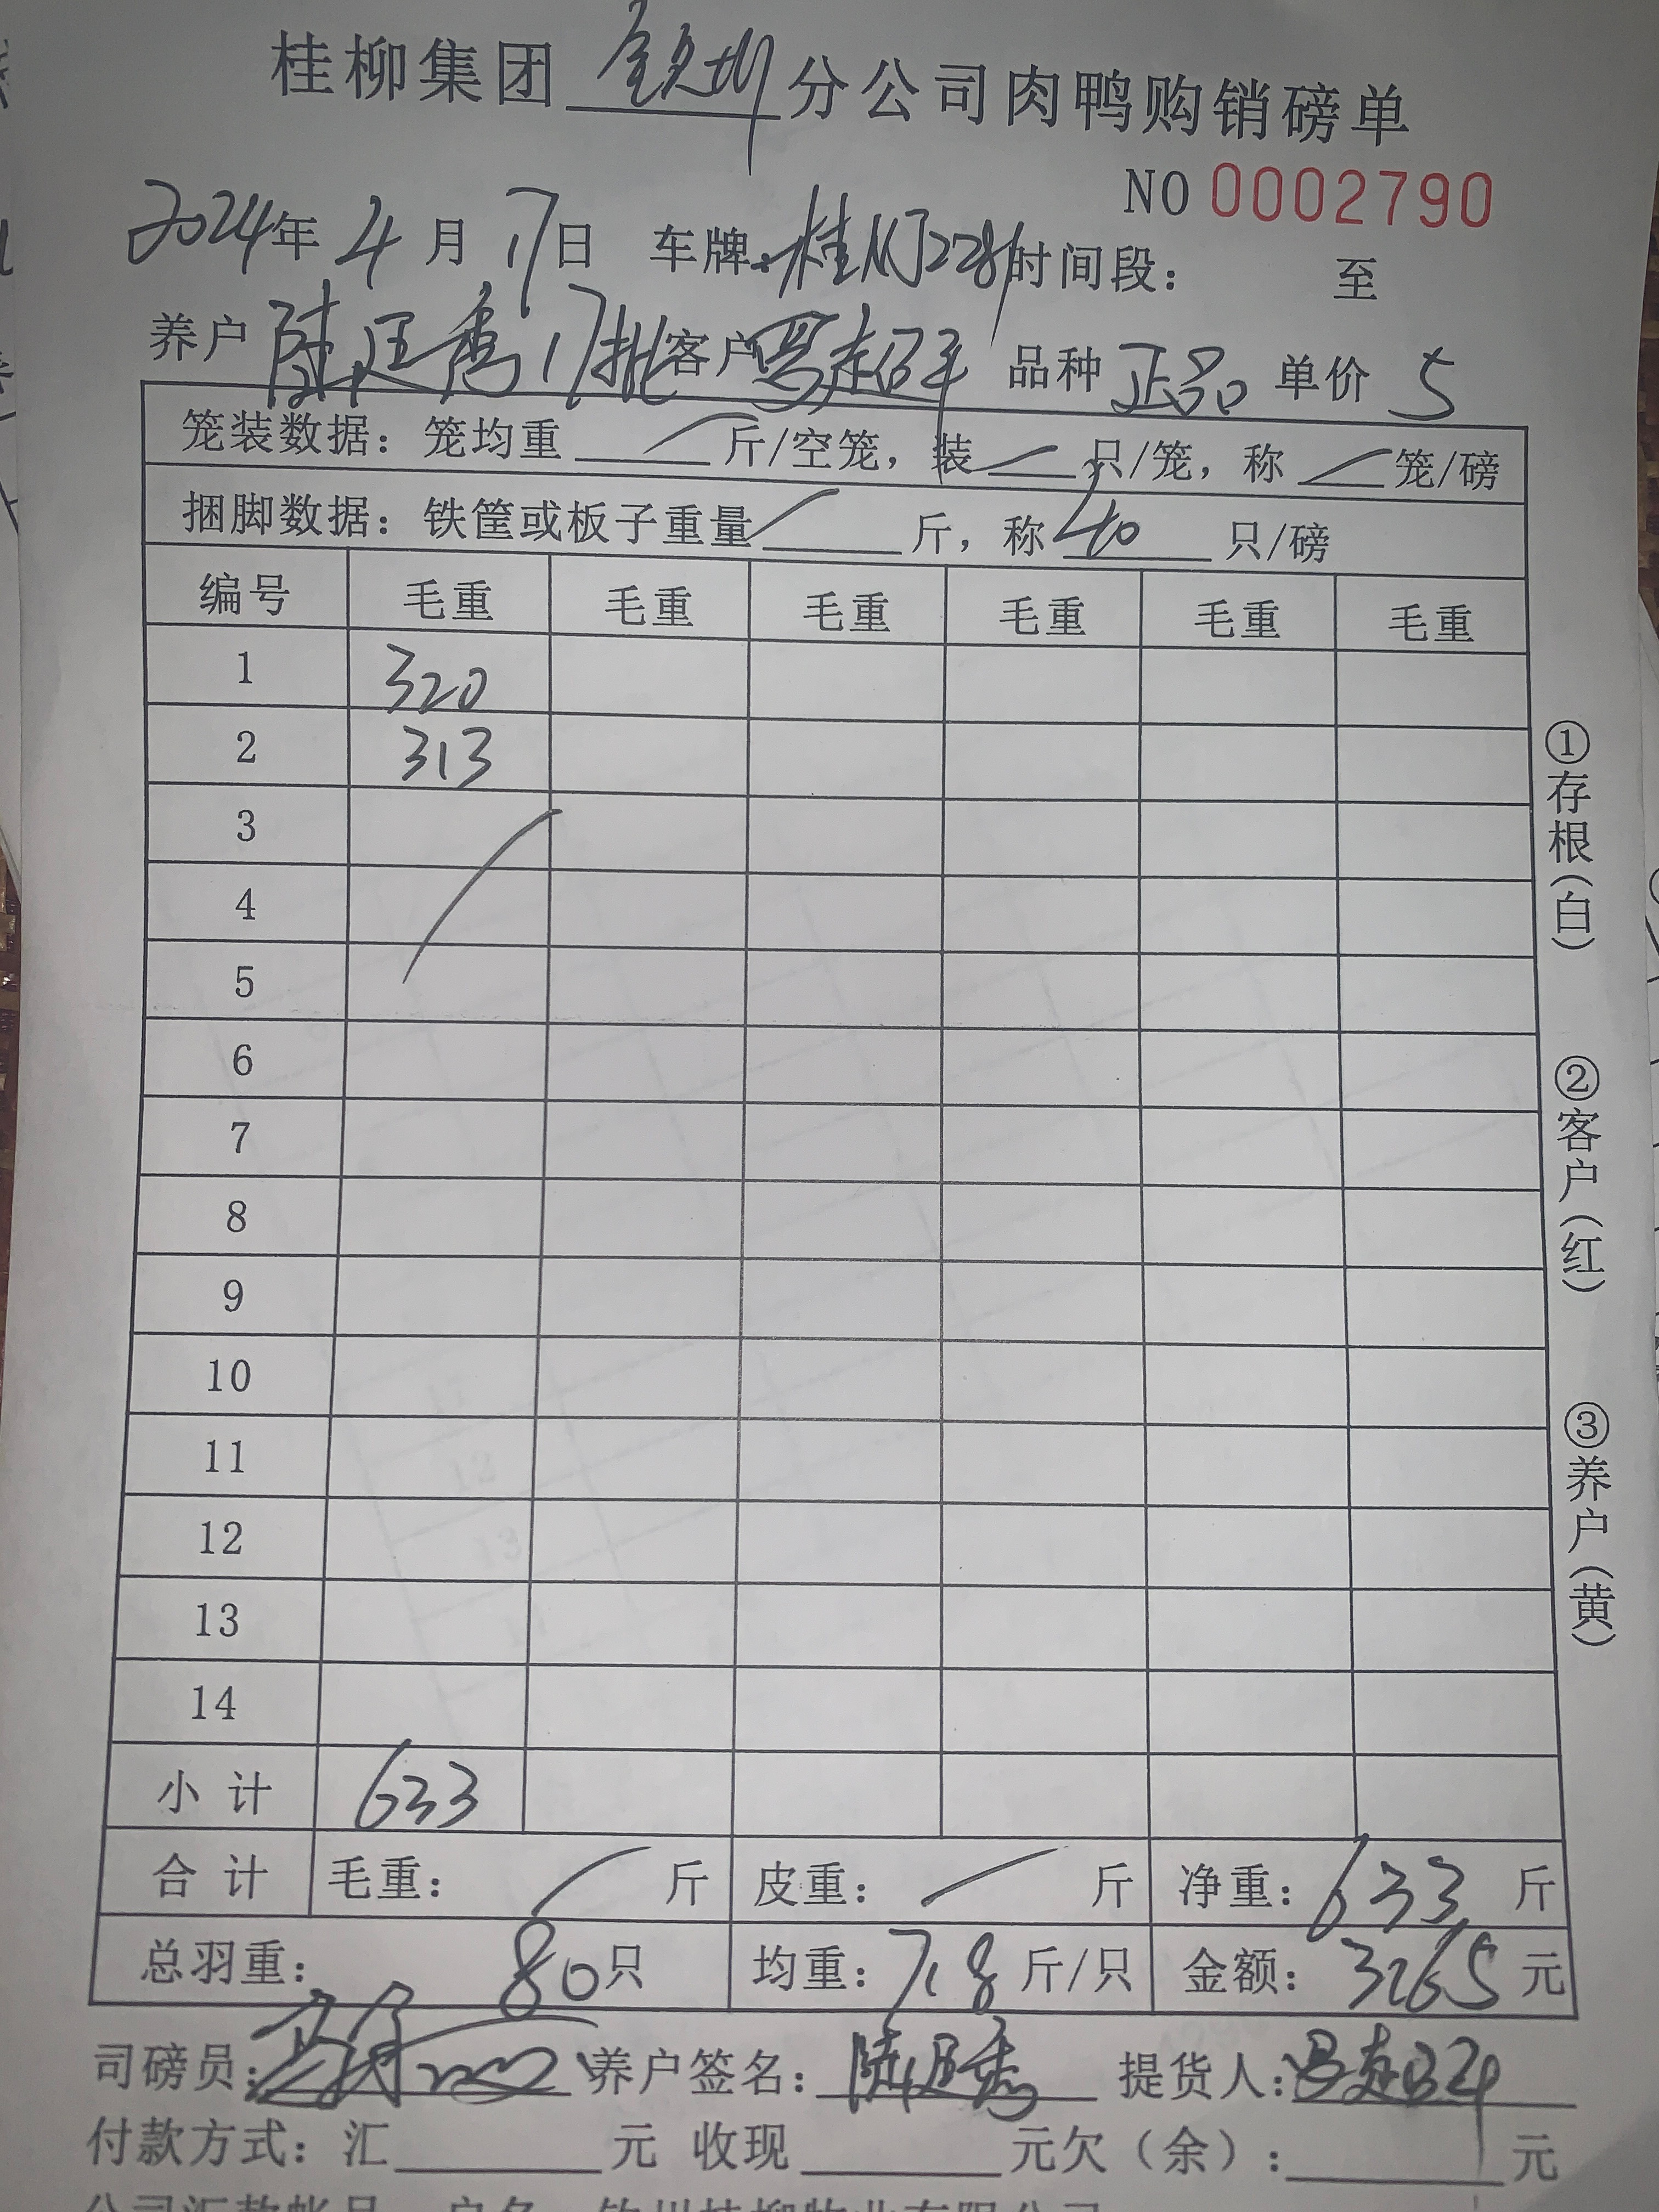 桂柳集团 钦州 分公司肉鸭购销磅单
NO 0002790
2024年 4 月 17日 车牌: 桂 时间段： 至
养户 陆廷秀 17批 客户 罗超平 品种 正品 单价 5
笼装数据：笼均重 / 斤/空笼，装 / 只/笼，称 / 笼/磅
捆脚数据：铁筐或板子重量 / 斤，称 40 只/磅
编号 毛重 毛重 毛重 毛重 毛重 毛重
1 320
2 313
3
4
5
6
7
8
9
10
11
12
13
14
小 计 633
合 计 毛重： / 斤 皮重： / 斤 净重： 633 斤
总羽重： 80 只 均重： 7.8 斤/只 金额： 3265 元
司磅员： 养户签名： 陆廷秀 提货人： 罗超平
付款方式：汇 元 收现 元欠（余）： 元
①存根（白）
②客户（红）
③养户（黄）